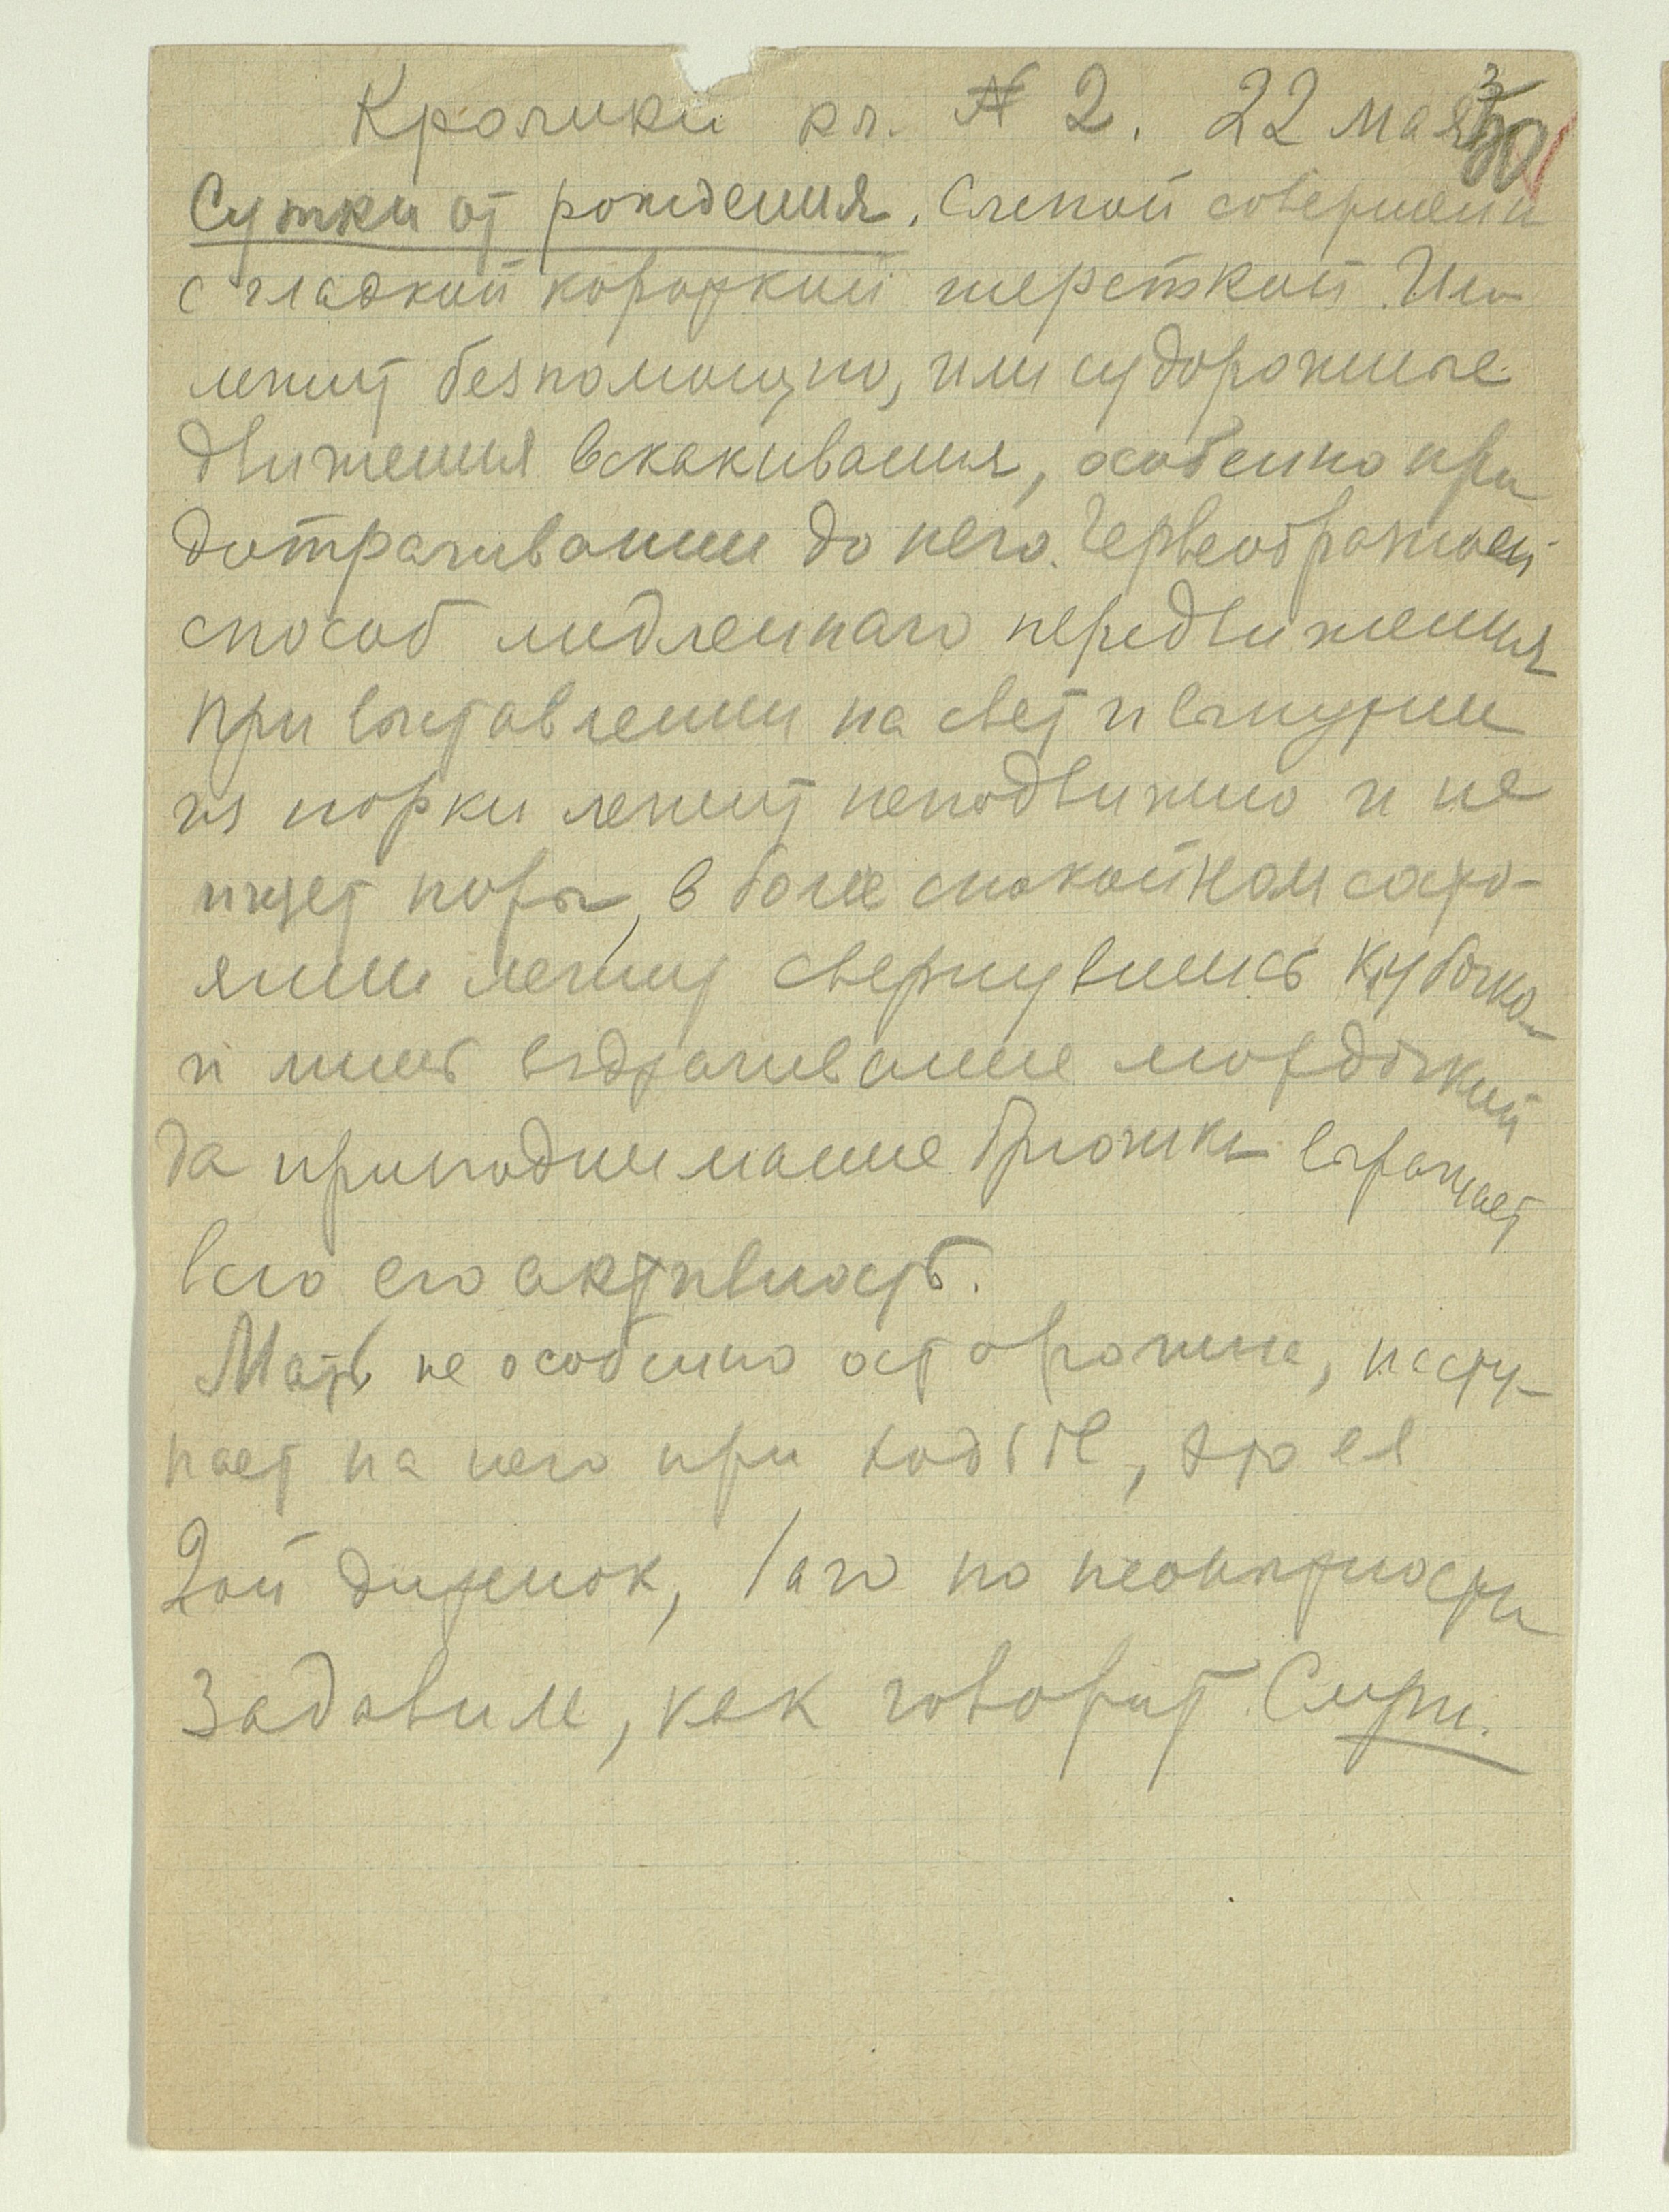 Кролики кл. № 2. 22 мая
Сутки от рождения. Слепой совершенн
с гладкой короткой шерсткой. Или
лежит безпомощно, или судорожные
движения вскакивания, особенно при
дотрагивании до него. Червеобразный
способ медленнаго передвижения
при выставлении на свет и вынутии
из норки лежит неподвижно и не
ищет норы, в более спокойном состо-
янии лежит свернувшись
и лишь вздрагивание мордочкой
да приподнимание брюшка выражает
всю его активность.
Мать не особенно осторожна, насту-
пает на него при ходьбе, это ея
2ой детенок, 1аго по неопытности
задавила, как говорит